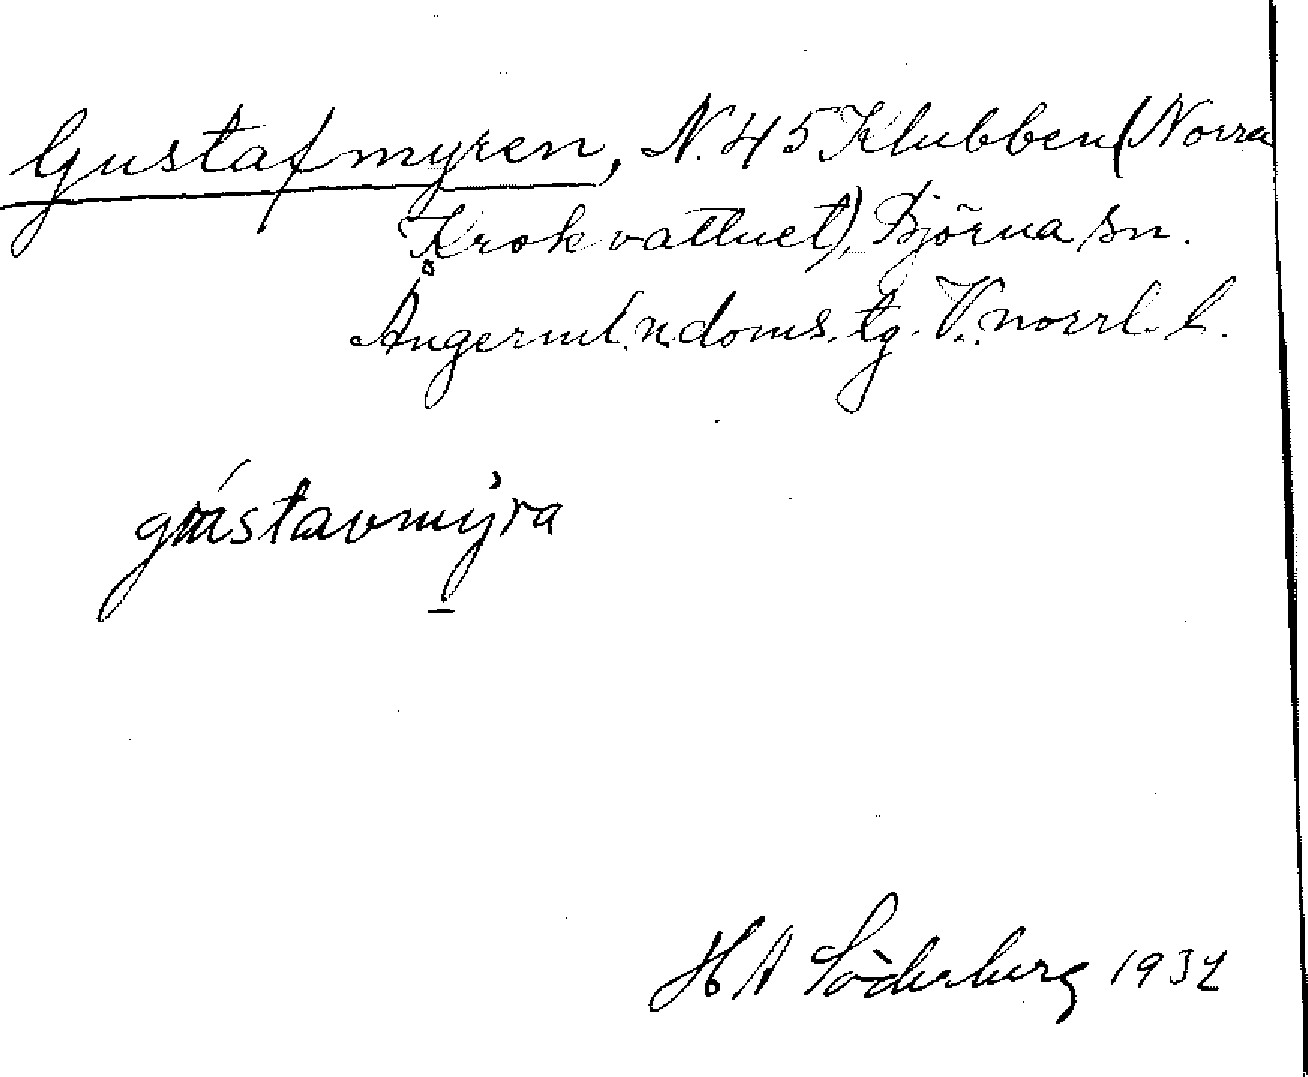 Gustafmyren, N. 45 Klubben (Norra
Krokvattnet), Björna sn.
Ångerml. n. doms. tg. V. norrl. l.
gústavmỳra
H A Söderberg 1932